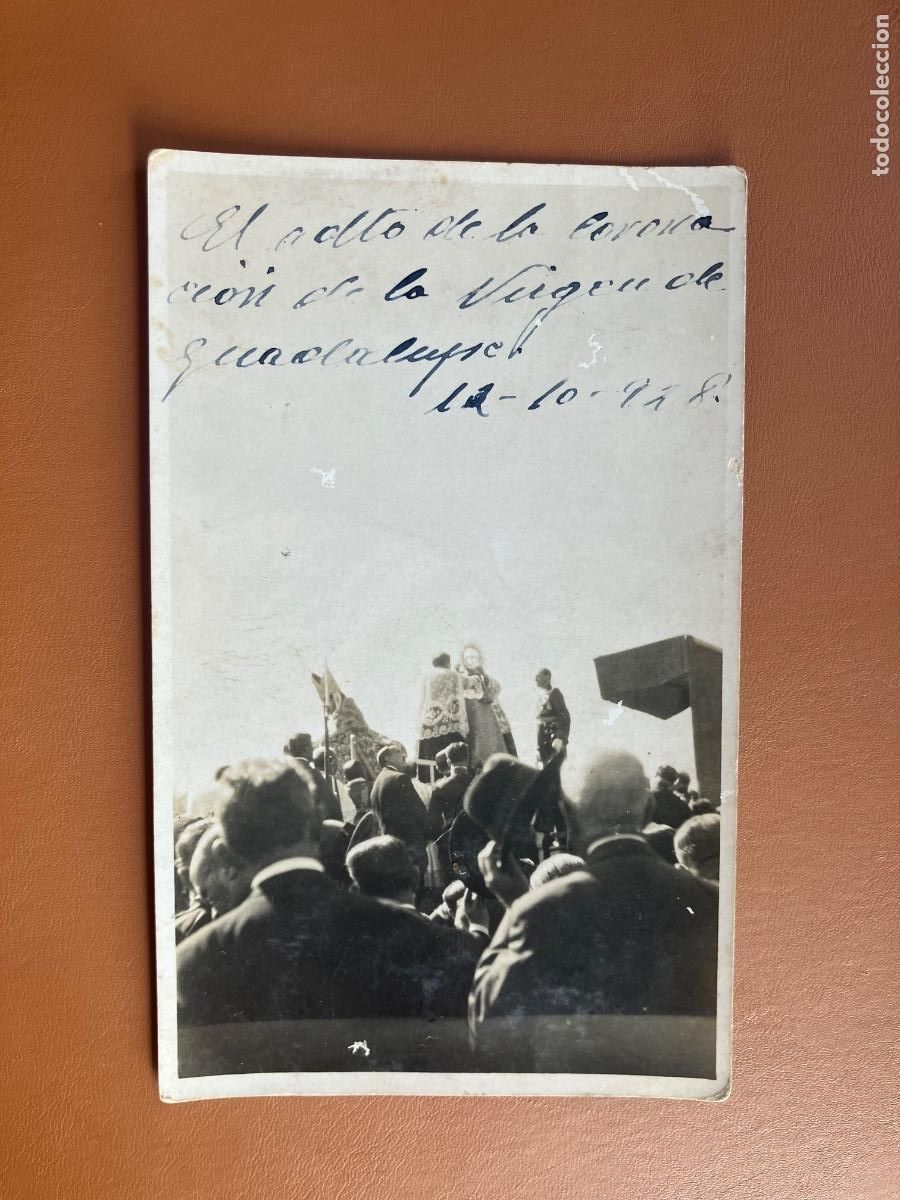 El adto de la corona
ción de la Virgen de
Guadalupe.
12-10-928.
todocoleccion